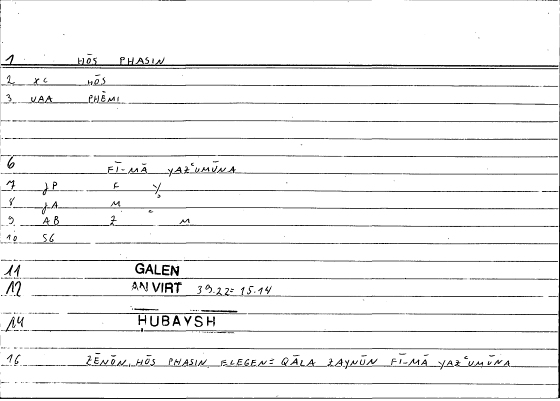 1 HŌS PHASIN
2 XC HŌS
3 UAA PHĒMI
6 FĪ-MĀ YAZʿUMŪNA
7 JP F Y
8 JA M
9 AB Z ʿ M
10 SG
11 GALEN
12 AN VIRT 39.22= 15.14
14 HUBAYSH
16 ZĒNŌN, HŌS PHASIN, ELEGEN= QĀLA ZAYNŪN FĪ-MĀ YAZʿUMŪNA